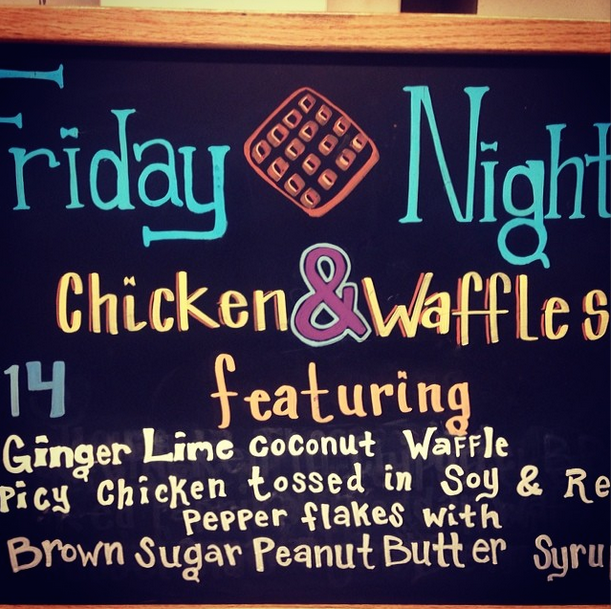 Friday Night
Chicken & Waffles
14 featuring
Ginger Lime coconut Waffle
picy chicken tossed in Soy & Re
Pepper flakes with
Brown Sugar Peanut Butter Syru